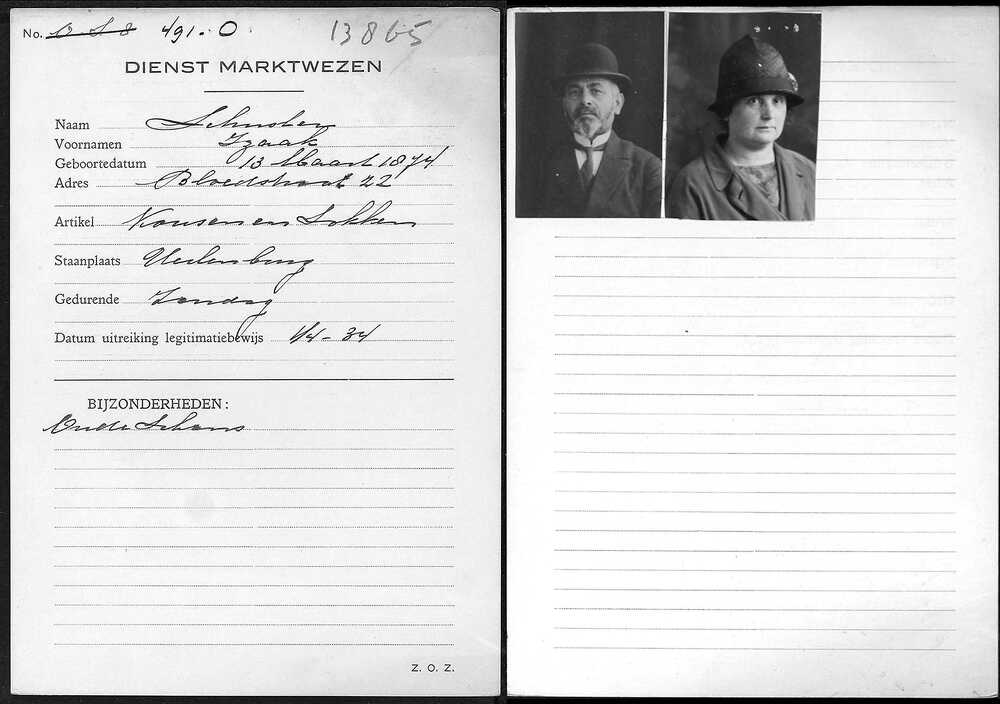 No. O S 8 491. O 13865
DIENST MARKTWEZEN
Naam Schuster
Voornamen Izaak
Geboortedatum 13 Maart 1874
Adres Bloedstraat 22
Artikel Kousen en Sokken
Staanplaats Uilenburg
Gedurende Zondag
Datum uitreiking legitimatiebewijs 1/4 - 34
BIJZONDERHEDEN:
Oude Schans
Z. O. Z.